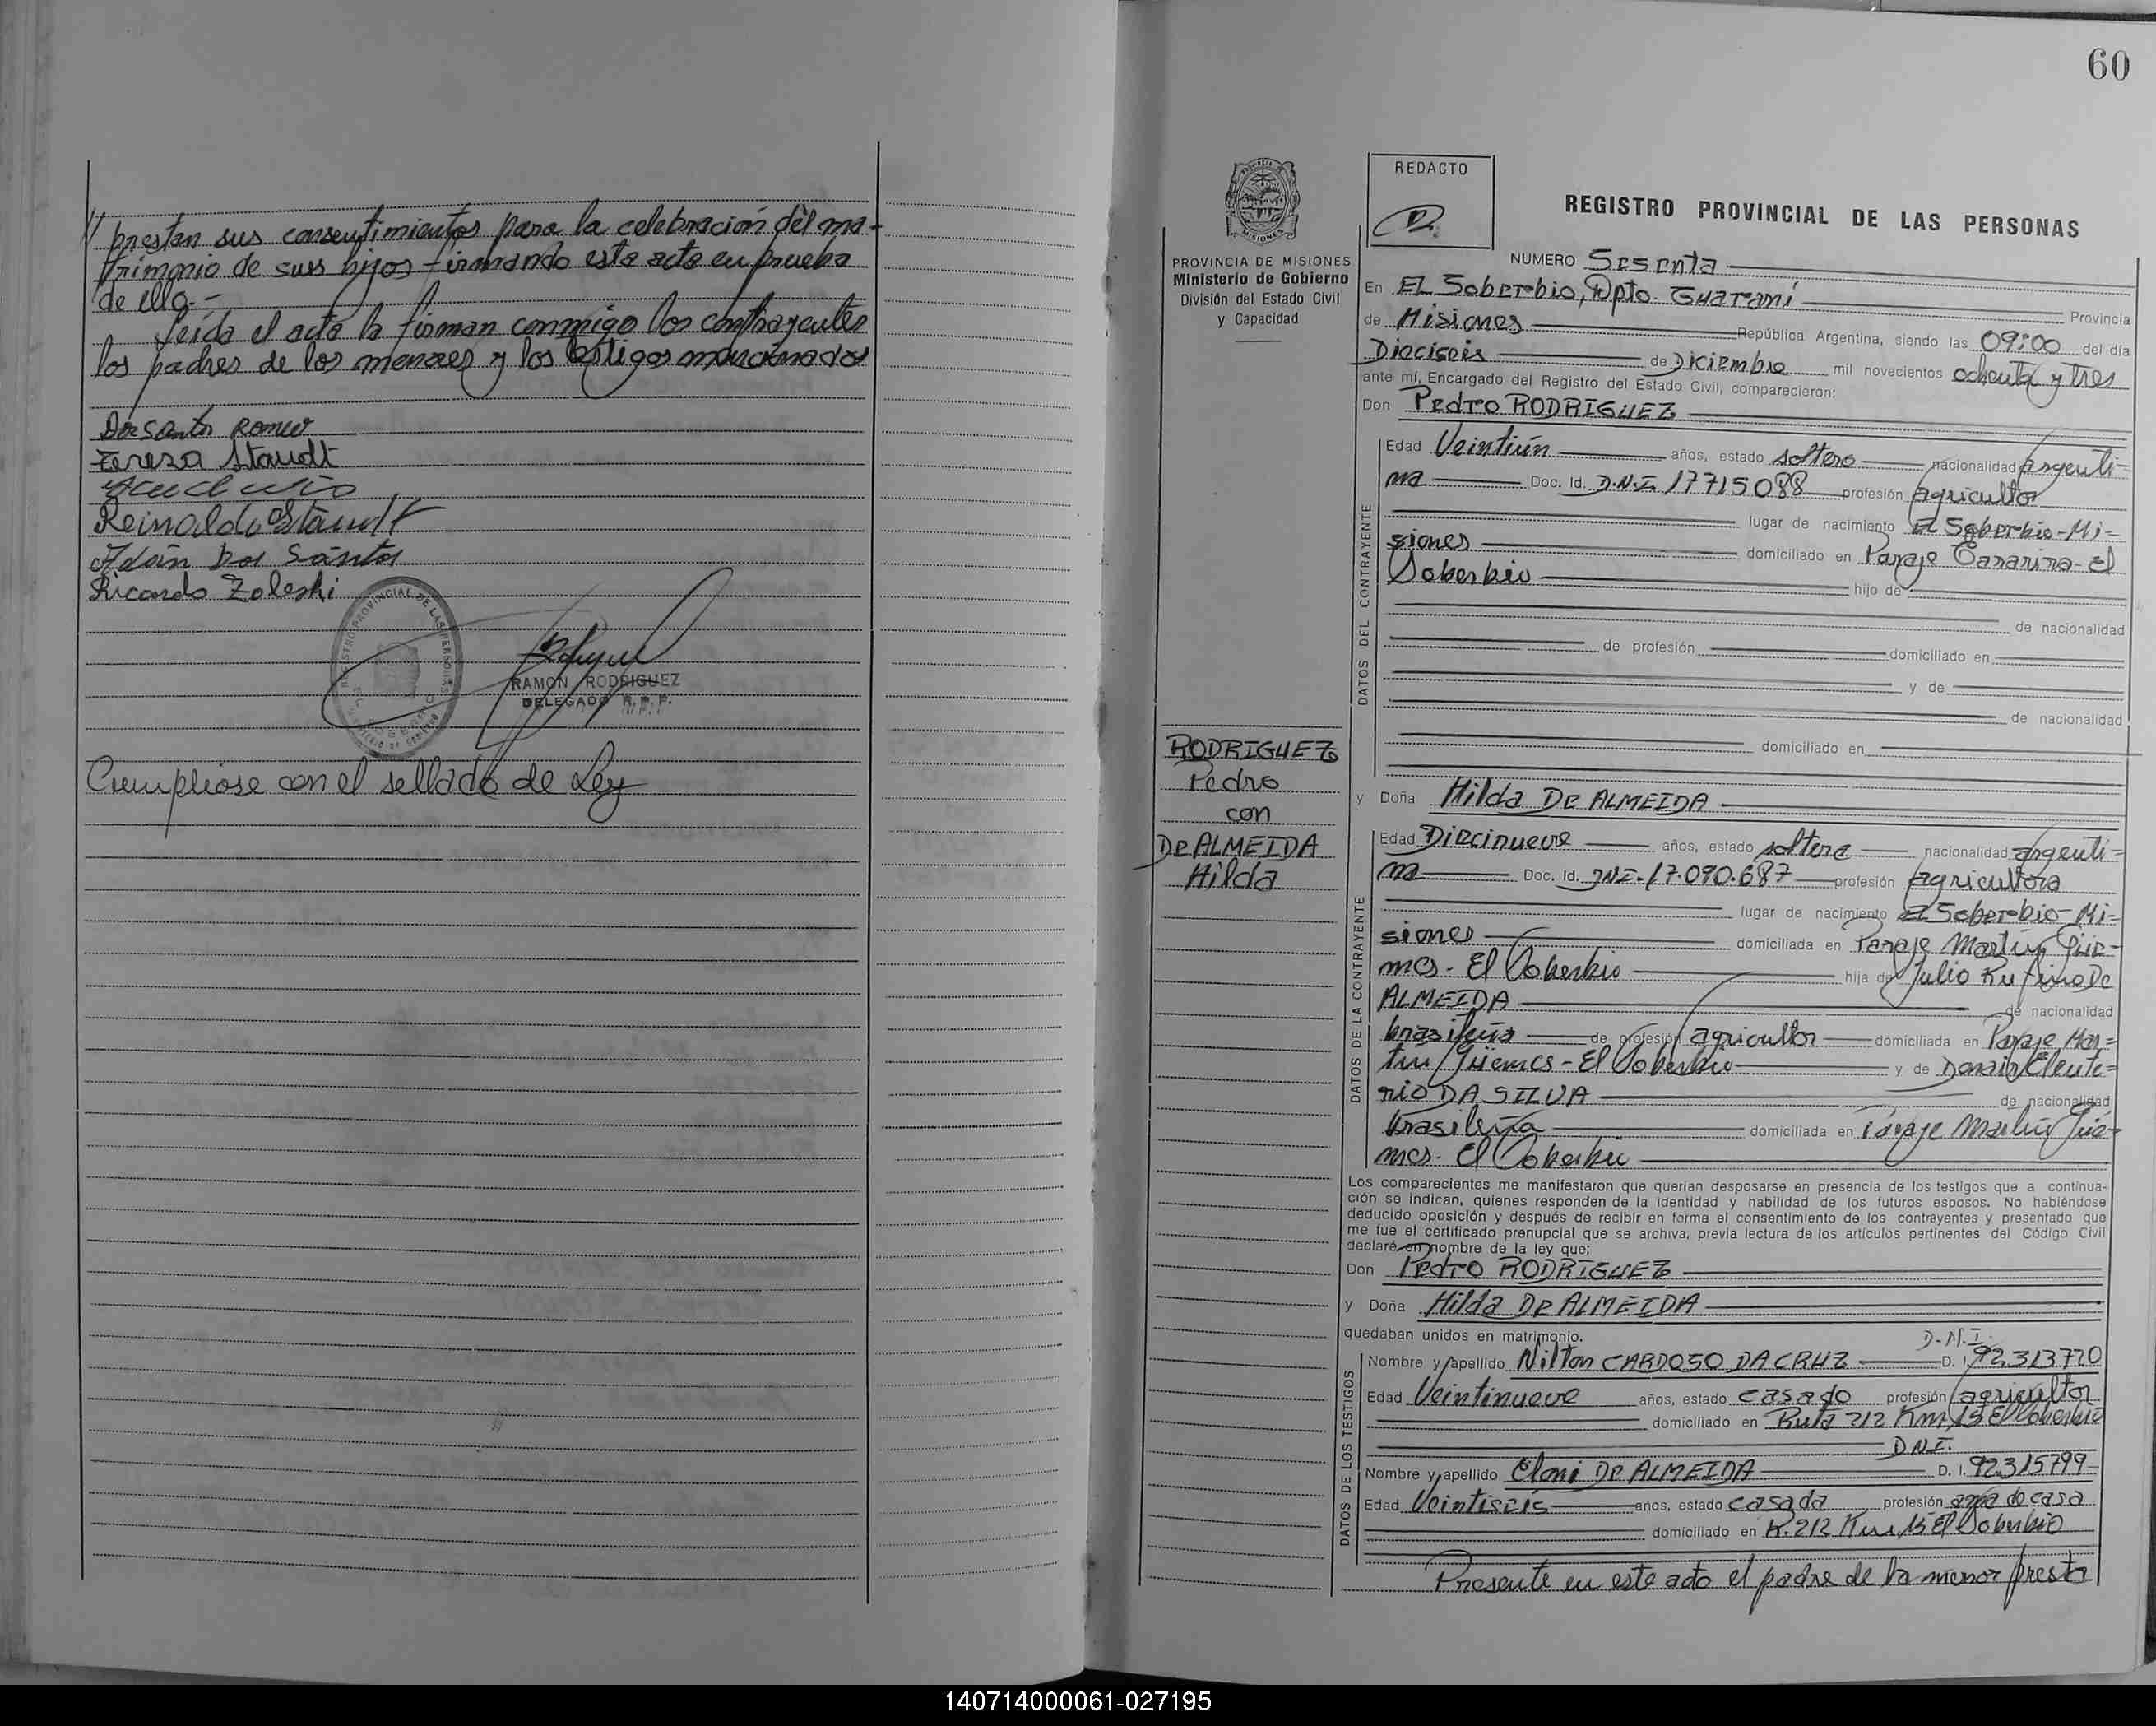 // prestan sus consentimientos para la celebración del ma-
trimonio de sus hijos firmando este acto en prueba
de ello.-
Leída el acta la firman conmigo los contrayentes
los padres de los menores y los testigos mencionados
Dos Santos Romeo
Tereza Staudt
Reinoldo Staudt
Adán Dos Santos
Ricardo Zaleski
REGISTRO PROVINCIAL DE LAS PERSONAS
RAMON RODRIGUEZ
DELEGADO R. P. P.
Cumpliose con el sellado de Ley
60
PROVINCIA DE MISIONES
Ministerio de Gobierno
División del Estado Civil
y Capacidad
RODRIGUEZ
Pedro
con
De ALMEIDA
Hilda
REDACTO
REGISTRO PROVINCIAL DE LAS PERSONAS
NUMERO Sesenta
En EL Soberbio, Dpto. Guaraní
de Misiones Provincia
República Argentina, siendo las 09:00 del día
Dieciseis de Diciembre mil novecientos ochenta y tres
ante mí, Encargado del Registro del Estado Civil, comparecieron:
Don Pedro RODRIGUEZ
DATOS DEL CONTRAYENTE
Edad Veintiún años, estado soltero nacionalidad argenti-
na Doc. Id. D.N.I. 17715088 profesión agricultor
lugar de nacimiento El Soberbio-Mi-
siones domiciliado en Paraje Canarina-El
Soberbio hijo de
de nacionalidad
de profesión domiciliado en
y de
de nacionalidad
domiciliado en
y Doña Hilda De ALMEIDA
DATOS DE LA CONTRAYENTE
Edad Diecinueve años, estado soltera nacionalidad argenti-
na Doc. Id. DNI-17.090.687 profesión agricultora
lugar de nacimiento El Soberbio-Mi-
siones domiciliada en Paraje Martín Güe-
mes - El Soberbio hija de Julio Rufino De
ALMEIDA de nacionalidad
brasileña de profesión agricultor domiciliada en Paraje Mar-
tín Güemes - El Soberbio y de Eleute-
rio DA SILVA de nacionalidad
brasileña domiciliada en Paraje Martín Güe-
mes - El Soberbio
Los comparecientes me manifestaron que querían desposarse en presencia de los testigos que a continua-
ción se indican, quienes responden de la identidad y habilidad de los futuros esposos. No habiéndose
deducido oposición y después de recibir en forma el consentimiento de los contrayentes y presentado que
me fue el certificado prenupcial que se archiva, previa lectura de los artículos pertinentes del Código Civil
declaré en nombre de la ley que:
Don Pedro RODRIGUEZ
y Doña Hilda De ALMEIDA
quedaban unidos en matrimonio.
DATOS DE LOS TESTIGOS
D.N.I.
Nombre y apellido Nilton CARDOSO DA CRUZ D. I. 92.313.770
Edad Veintinueve años, estado casado profesión agricultor
domiciliado en Ruta 212 Km, 15 El Soberbio
D N I.
Nombre y apellido Eloni De ALMEIDA D. I. 92315799
Edad Veintiseis años, estado casada profesión ama de casa
domiciliado en R. 212 Km, 15 El Soberbio
Presente en este acto el padre de la menor presta
140714000061-027195